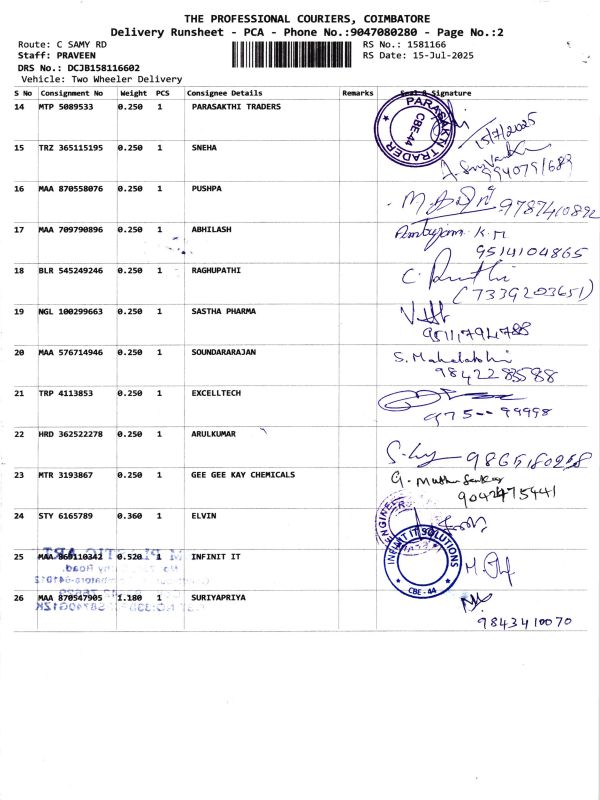 THE PROFESSIONAL COURIERS, COIMBATORE
Delivery Runsheet - PCA - Phone No.:9047080280 - Page No.:2
Route: C SAMY RD RS No.: 1581166
Staff: PRAVEEN RS Date: 15-Jul-2025
DRS No.: DCJB158116602
Vehicle: Two Wheeler Delivery
S No Consignment No Weight PCS Consignee Details Remarks Seal & Signature
14 MTP 5089533 0.250 1 PARASAKTHI TRADERS
PARASAKTHI TRADER CBE-44
15/7/2025
15 TRZ 365115195 0.250 1 SNEHA
16 MAA 870558076 0.250 1 PUSHPA
17 MAA 709790896 0.250 1 ABHILASH K.M
9514104865
18 BLR 545249246 0.250 1 RAGHUPATHI
(7339203651)
19 NGL 100299663 0.250 1 SASTHA PHARMA
20 MAA 576714946 0.250 1 SOUNDARARAJAN S. Mahalakshmi
9842283588
21 TRP 4113853 0.250 1 EXCELLTECH
22 HRD 362522278 0.250 1 ARULKUMAR
23 MTR 3193867 0.250 1 GEE GEE KAY CHEMICALS
9042475441
24 STY 6165789 0.360 1 ELVIN
25 MAA 869110342 0.520 1 INFINIT IT
INFINIT IT SOLUTIONS CBE - 44
26 MAA 870547905 1.180 1 SURIYAPRIYA
9843410070